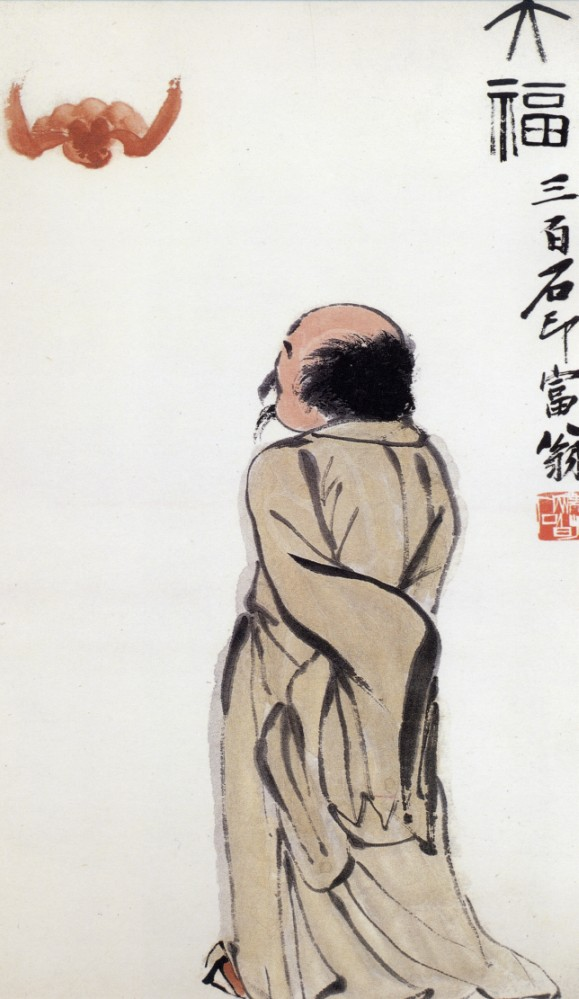 大福
三百石印富翁